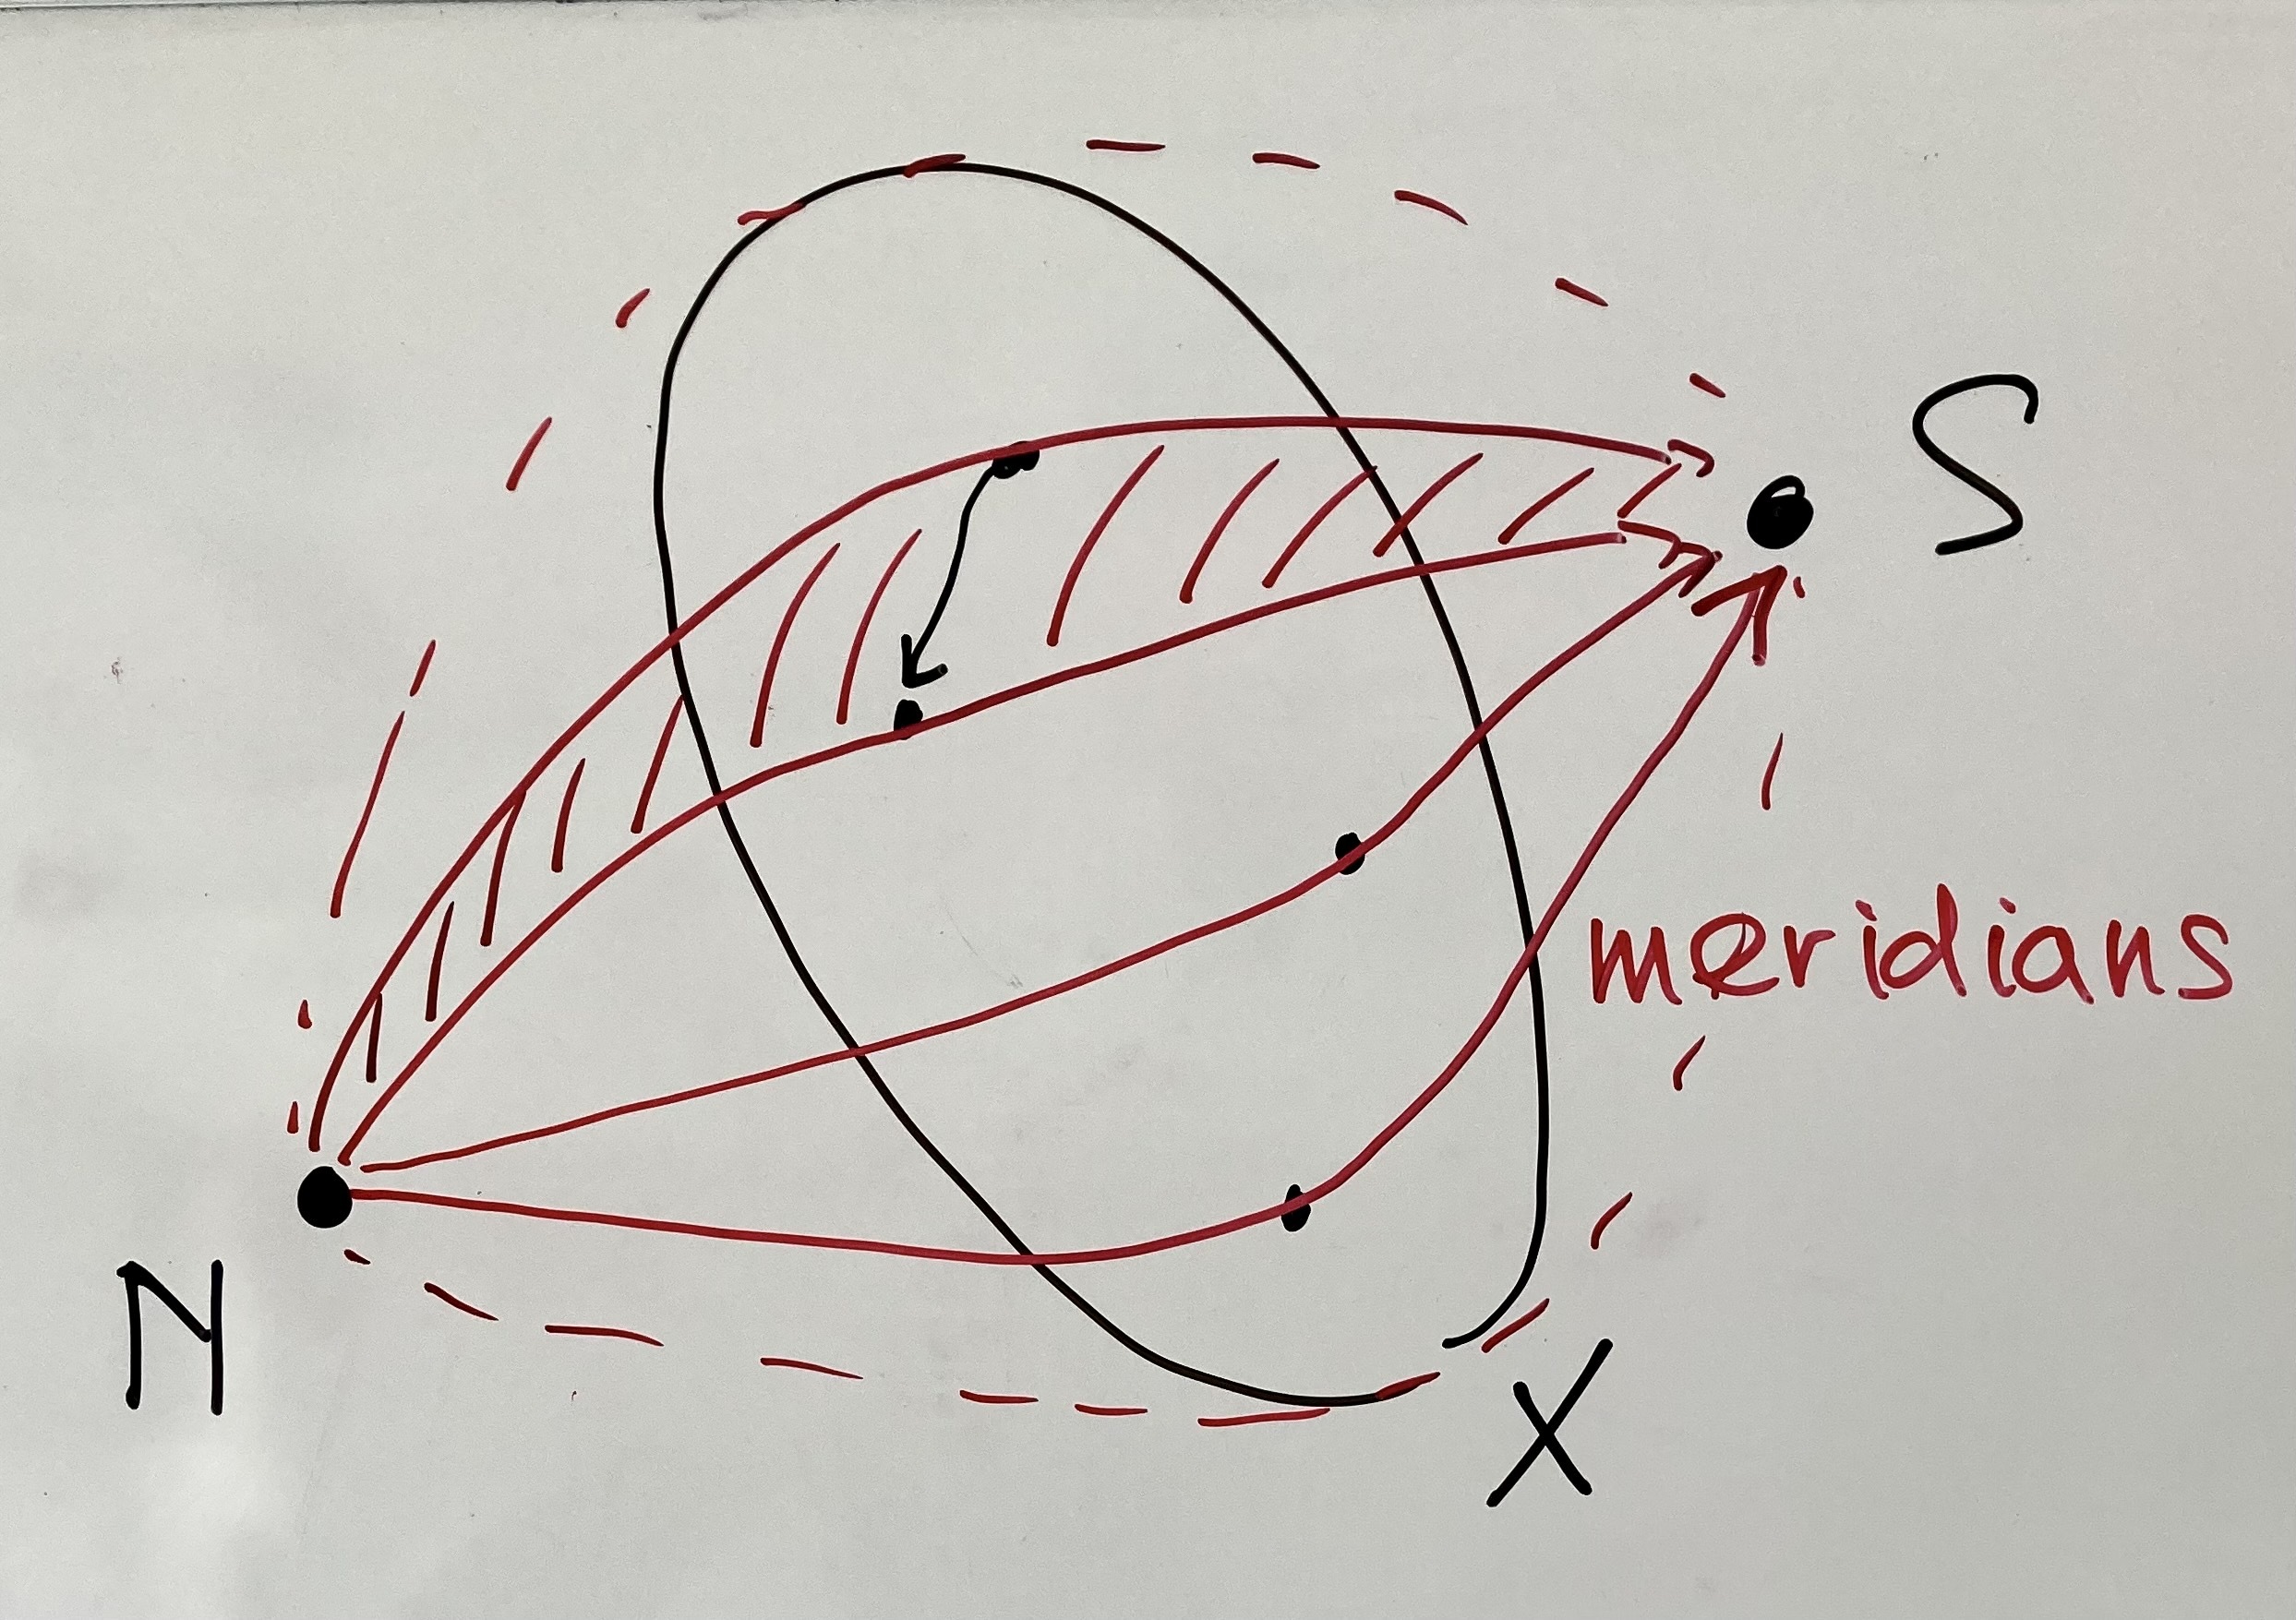 S
meridians
N
X